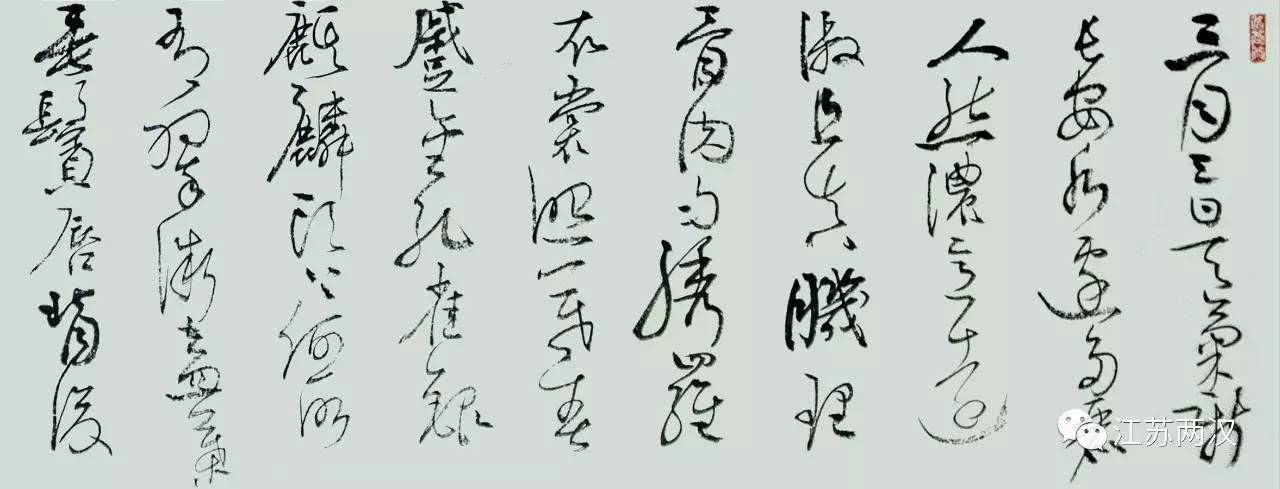 三月三日天氣新
長安水邊多麗
人態濃意遠
淑且真肌理
骨肉勻繡羅
衣裳照暮春
蹙金孔雀銀
麒麟頭上何所
有翠微盍葉
垂鬢唇背後
江苏两汉